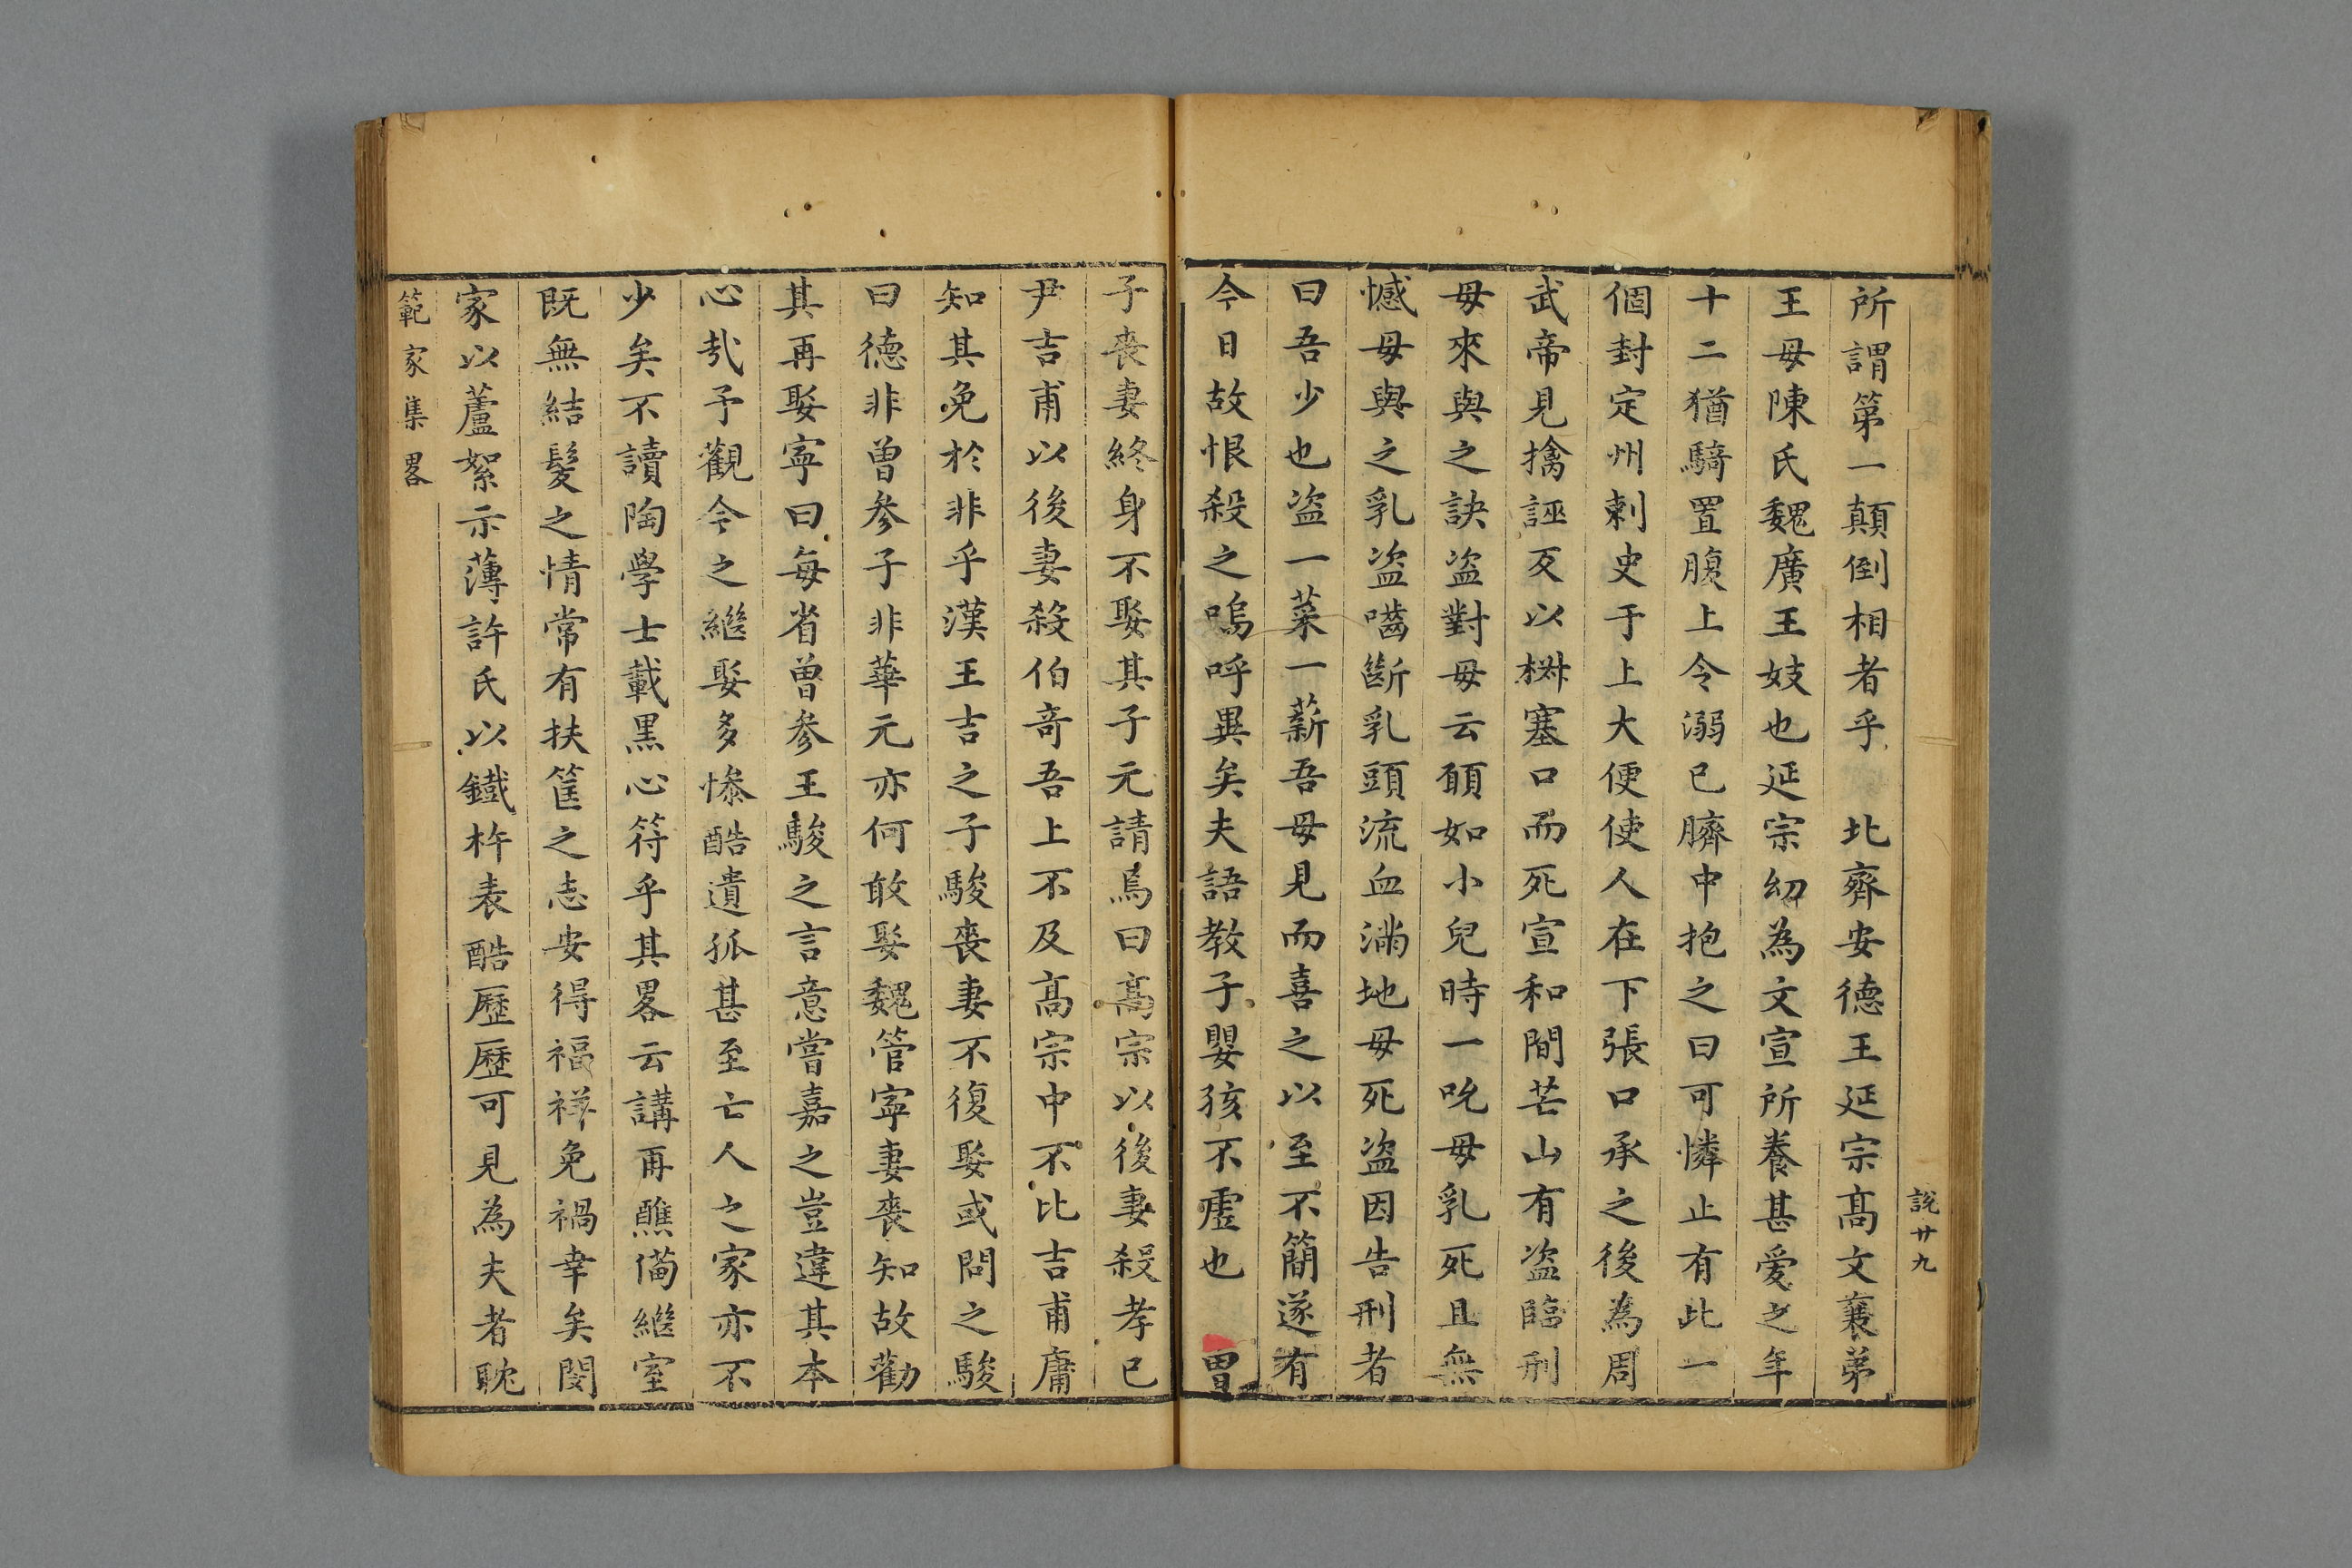 說廿九
所謂第一顛倒相者乎　北齊安德王延宗高文襄弟
王母陳氏魏廣王妓也延宗幼為文宣所養甚爱之年
十二猶騎置腹上令溺已臍中抱之曰可憐止有此一
個封定州刺史于上大便使人在下張口承之後為周
武帝見擒誣反以椒塞口而死宣和間芒山有盗臨刑
母來與之訣盗對母云願如小兒時一吮母乳死且無
憾母與之乳盗嚙斷乳頭流血滿地母死盗因告刑者
曰吾少也盗一菜一薪吾母見而喜之以至不簡遂有
今日故恨殺之嗚呼異矣夫語教子嬰孩不虛也　曾
子喪妻終身不娶其子元請焉曰高宗以後妻殺孝已
尹吉甫以後妻殺伯奇吾上不及高宗中不比吉甫庸
知其免於非乎漢王吉之子駿喪妻不復娶或問之駿
曰德非曾參子非華元亦何敢娶魏管寧妻喪知故勸
其再娶寧曰每省曾參王駿之言意嘗嘉之豈違其本
心㢤予觀今之繼娶多慘酷遺孤甚至亡人之家亦不
少矣不讀陶學士載黒心符乎其畧云講再醮備繼室
既無結髮之情常有扶筐之志安得福祥免禍幸矣閔
家以蘆絮示薄許氏以鐡杵表酷歷歷可見為夫者耽
範家集畧